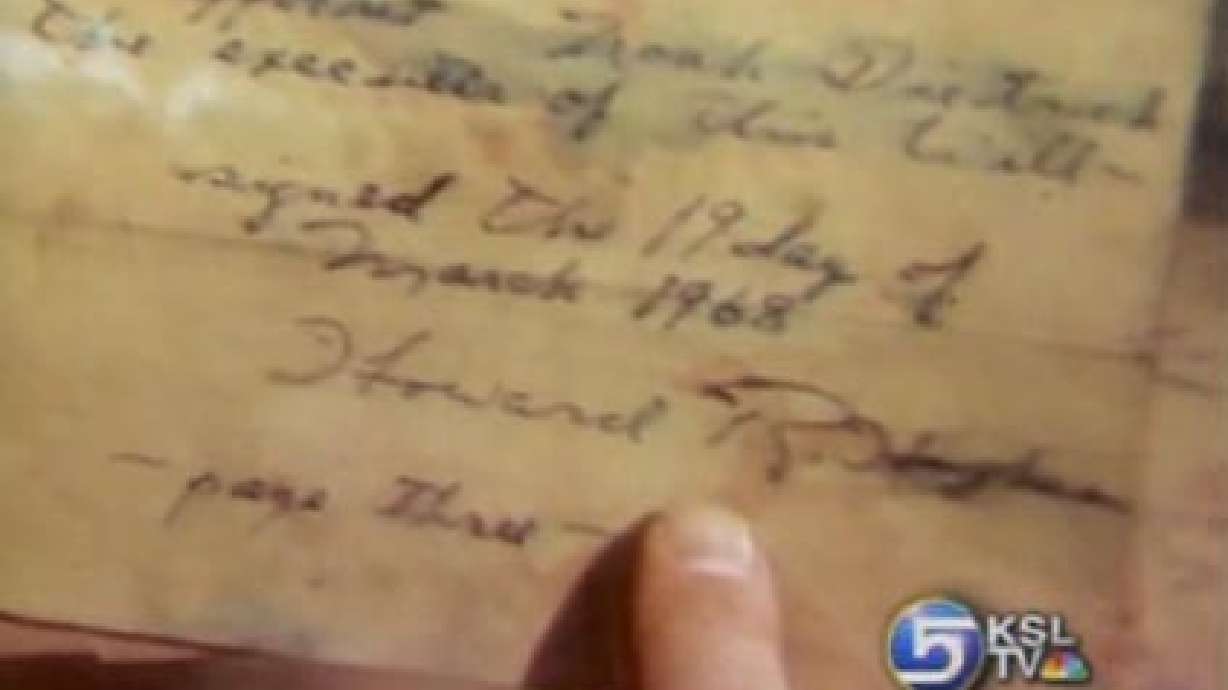 appoint Noah Dietrich
the executer of this Will –
signed the 19 day of
March 1968
Howard R. Hughes
– page three –
5 KSL
TV